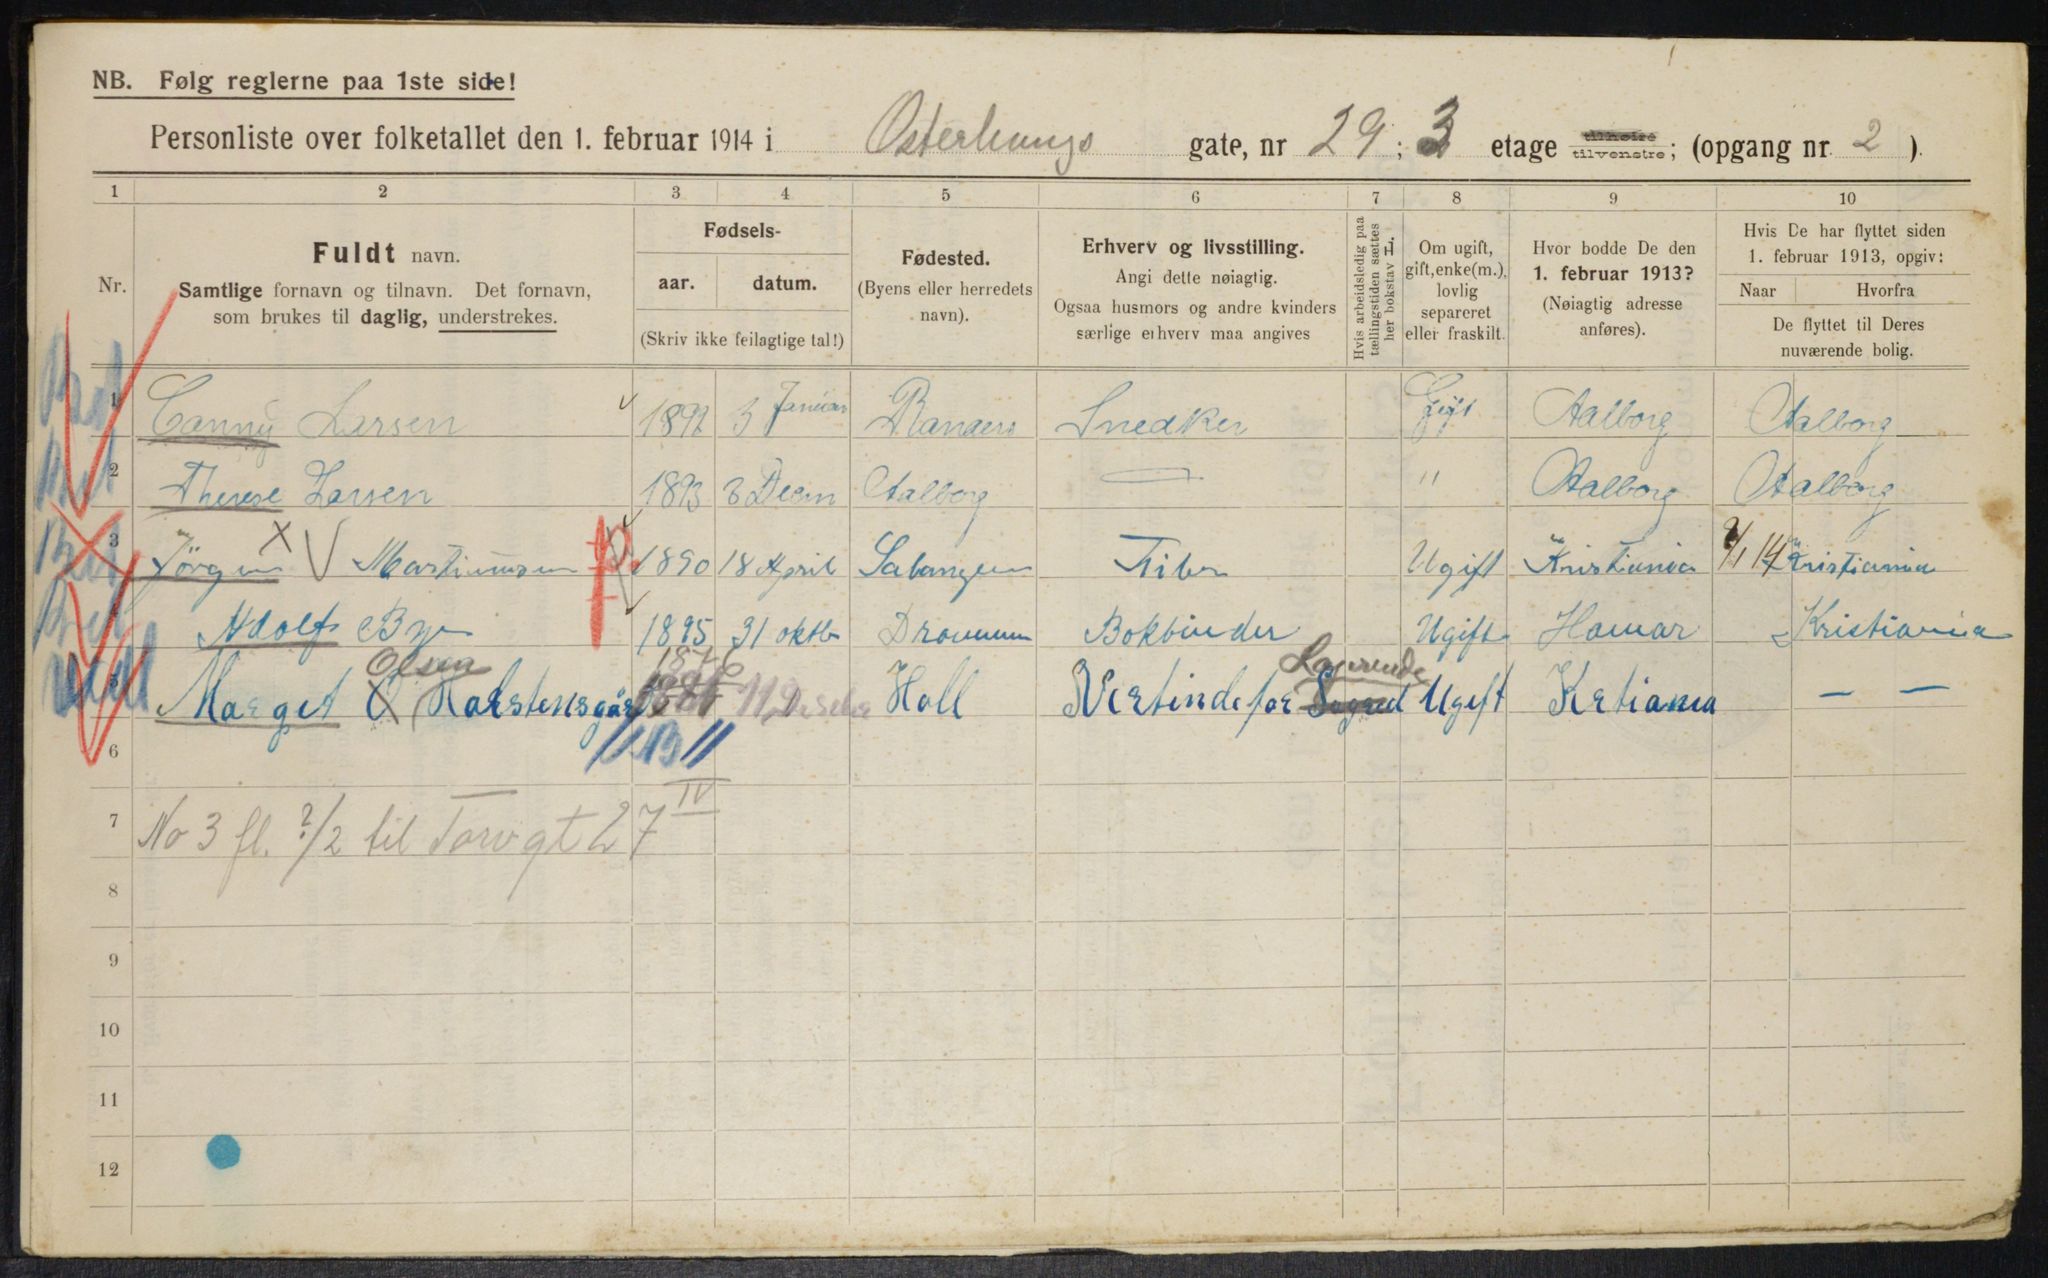 NB. Følg reglerne paa 1ste side!
Personliste over folketallet den 1. februar 1914 i Osterhaugs gate, nr 29; 3 etage tilhøire tilvenstre; (opgang nr 2 ).
1 2 3 4 5 6 7 8 9 10
Nr.
Fuldt navn.
Samtlige fornavn og tilnavn. Det fornavn,
som brukes til daglig, understrekes.
Fødsels-
aar. datum.
(Skriv ikke feilagtige tal!)
Fødested.
(Byens eller herredets
navn).
Erhverv og livsstilling.
Angi dette nøiagtig.
Ogsaa husmors og andre kvinders
særlige erhverv maa angives
Hvis arbeidsledig paa
tællingstiden sættes
her bokstav L.
Om ugift,
gift, enke(m.),
lovlig
separeret
eller fraskilt.
Hvor bodde De den
1. februar 1913?
(Nøiagtig adresse
anføres).
Hvis De har flyttet siden
1. februar 1913, opgiv:
Naar Hvorfra
De flyttet til Deres
nuværende bolig.
1 Canny Larsen 1892 3 Januar Randers Snedker Gift Aalborg Aalborg
2 Therese Larsen 1893 3 Decm Aalborg — " Aalborg Aalborg
3 Jörgen X V Martiniussen 1890 18 April Salangen Filer Ugift Kristiania 9/1 14 Kristiania
4 Adolf Bye 1895 31 oktb Drammen Bokbinder Ugift Hamar Kristiania
Olsen 1876 Laurende
5 Marget O Karstensgår Holl Vertinde for Ugift Kertiania — —
6
7 No 3 fl. ?/2 til Torvgt 27 IV
8
9
10
11
12